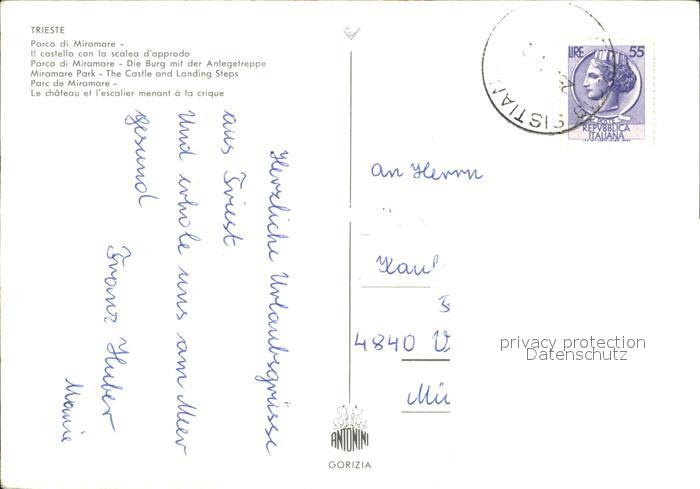 TRIESTE
Parco di Miramare -
Il castello con la scalea d'approdo
Parco di Miramare - Die Burg mit der Anlegetreppe
Miramare Park - The Castle and Landing Steps
Parc de Miramare -
Le château et l'escalier menant à la crique
Herzliche Urlaubsgrüsse
aus Triest.
Und erhole uns am Meer
gesund
Franz Huber
Marie
LIRE 55
POSTE
REPVBBLICA
ITALIANA
SISTIAN
An Herrn
4840 V
Mü
privacy protection
Datenschutz
ANTONINI
GORIZIA